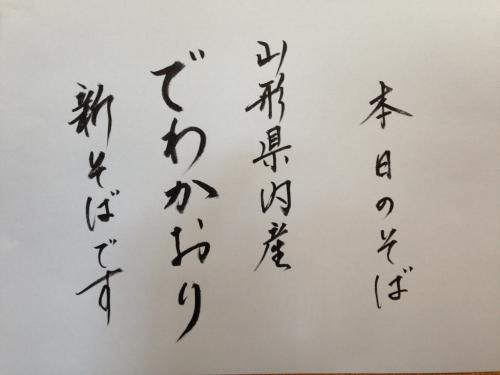 本日のそば
山形県内産
でわかおり
新そばです